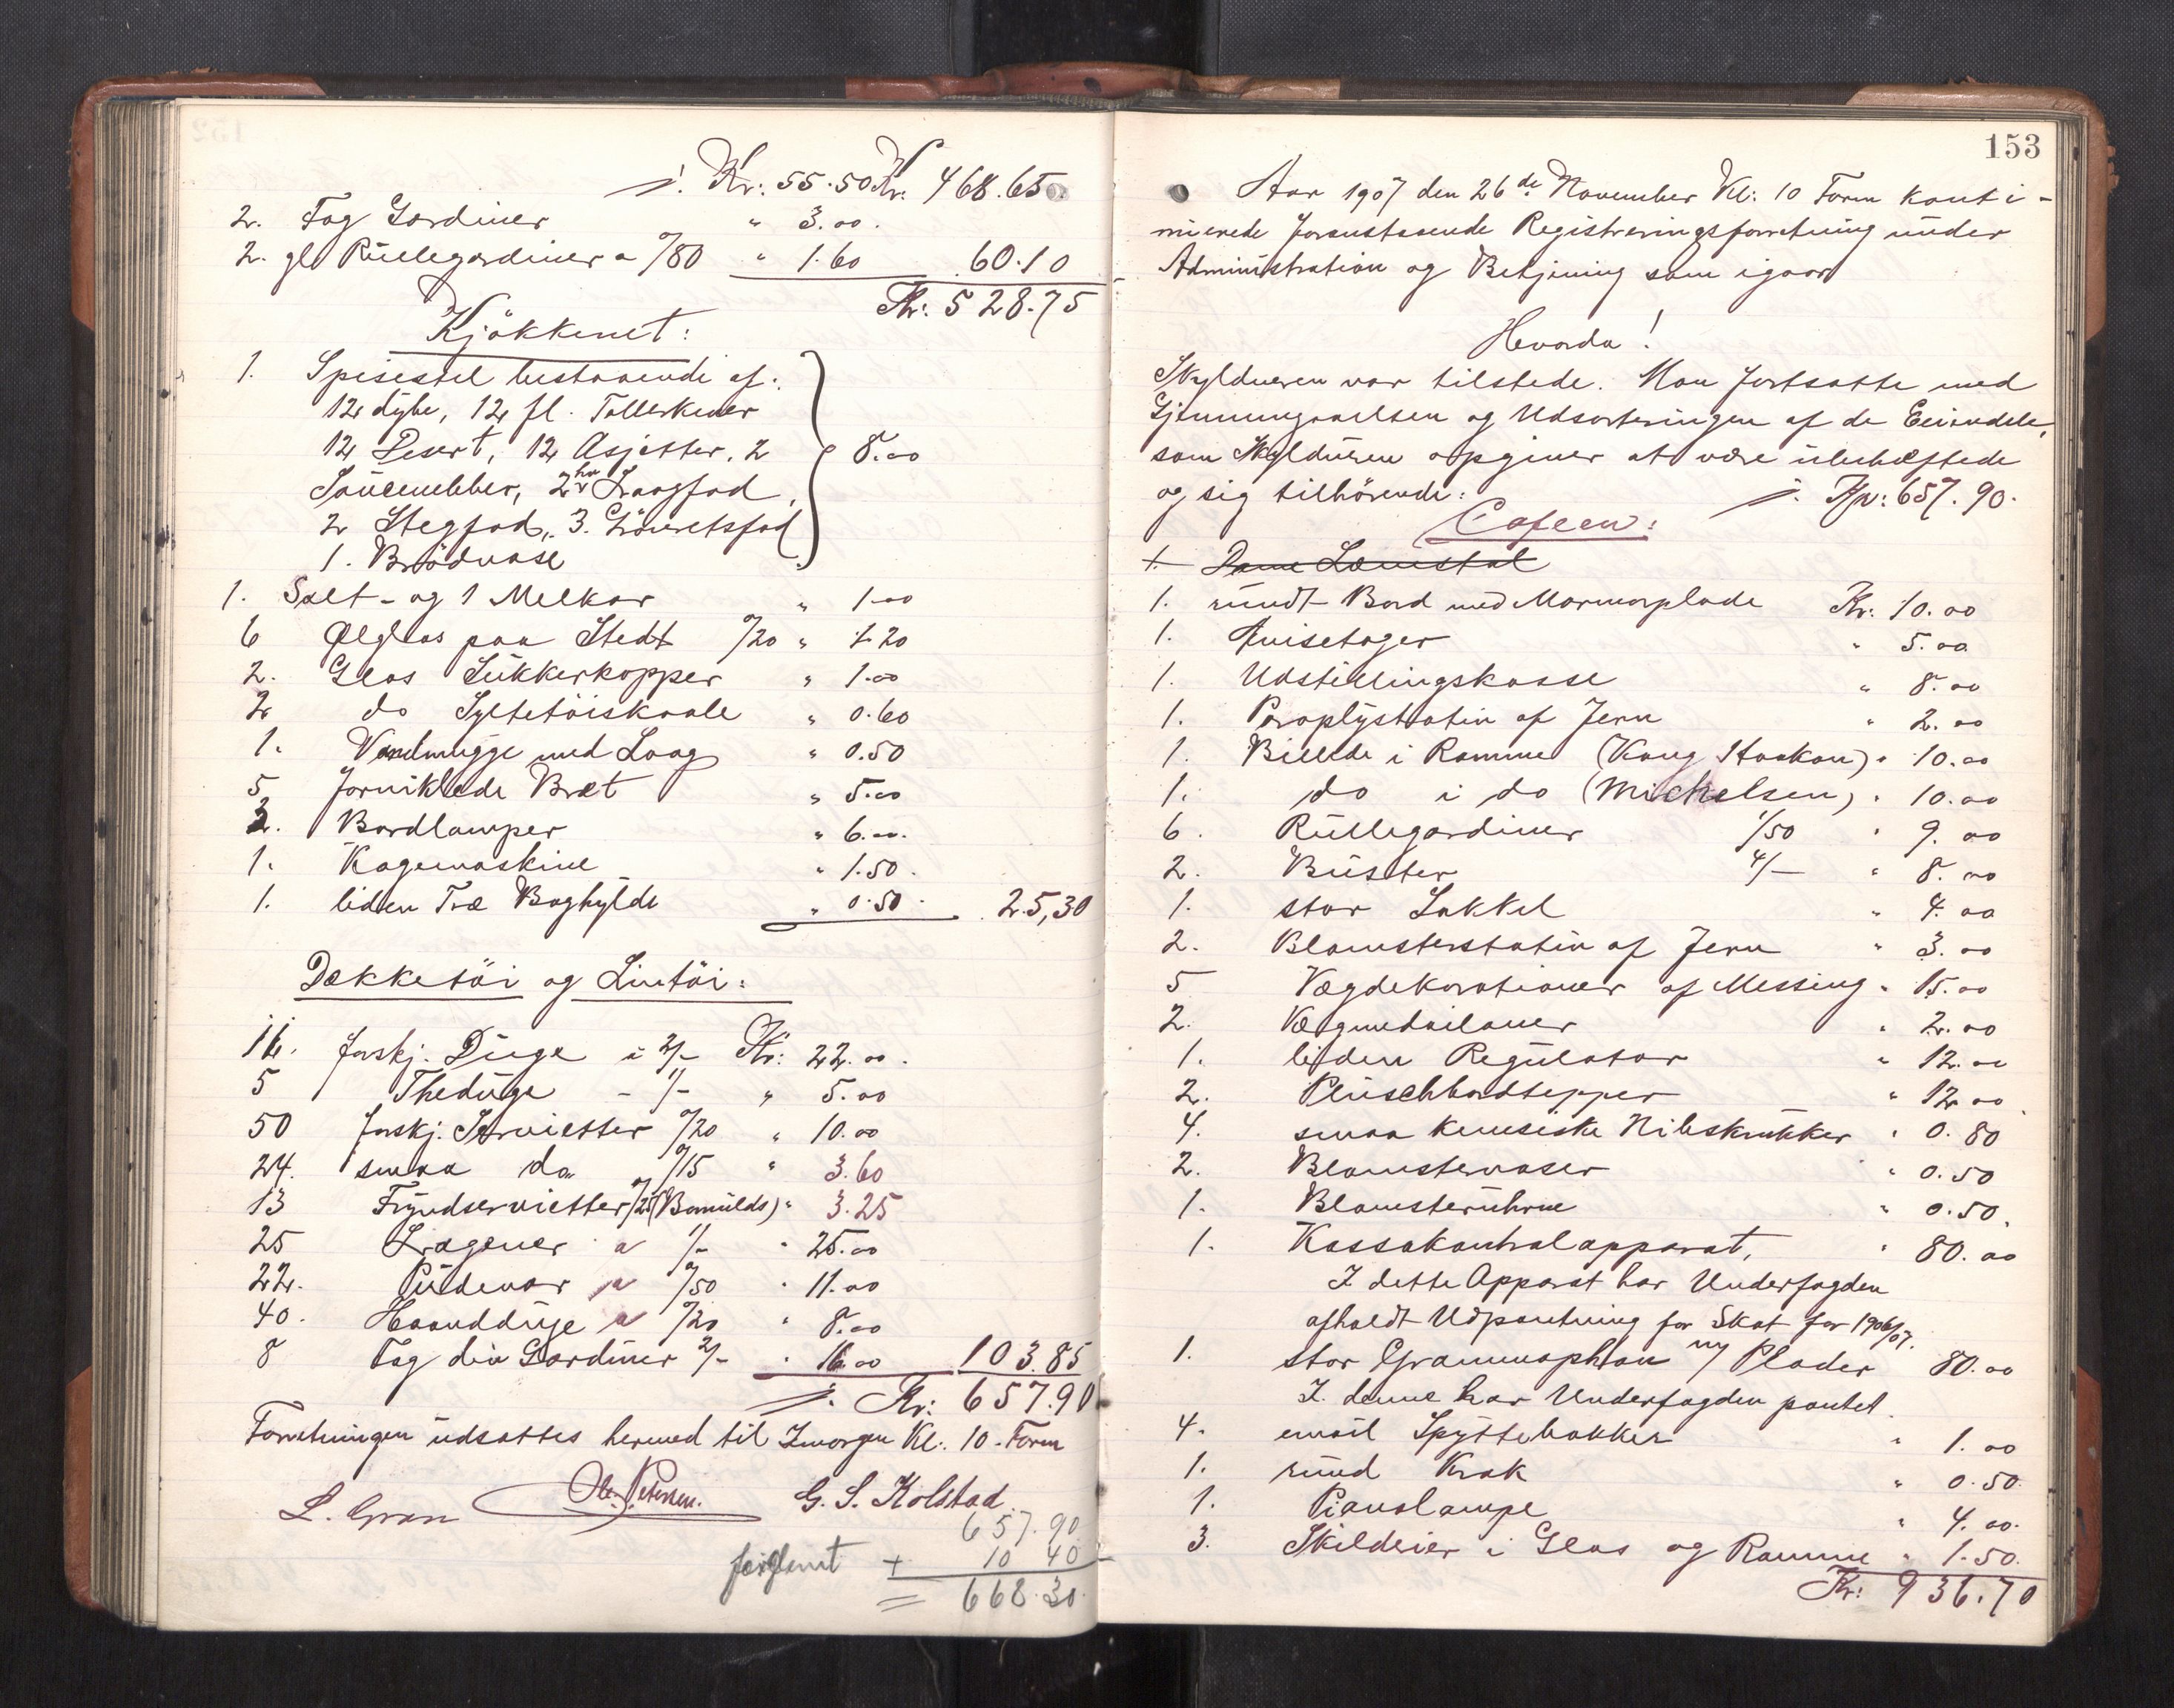 /. Kr: 55.50 Kr. 468.65.
2. Fag Gardiner " 3.00.
2. gl Rullegardiner a 0/80 " 1.60 60.10
Kr: 528.75
Kjøkkenet:
1. Spisestel bestaaende af:
12 dybe, 12 fl. Tallerkener
12 Desert, 12 Asjetter, 2 8.00
Saucenebber, 2 Laagfad,
2 Stegfad, 3. Fad
1. Brødvase
1. Salt- og 1 Melkar " 1.00
6 Ølglas paa Stedt 0/20 " 1.20
2. Glas Sukkerkopper " 1.00
2 do Syltetøiskaale " 0.60
1. Vandmugge med Laag " 0.50
5 forniklede Bret " 5.00
2. Bordlamper " 6.00.
1. Kagemaskine " 1.50.
1. liden Træ Boghylde " 0.50. 25,30
Dækketøi og Lintøi:
11. forskj. Duge a 2/- Kr: 22.00.
5 Theduge - 1/- " 5.00
50 forskj. Servietter 0/20 " 10.00
24. smaa do 0/15 " 3.60
13 Fryndservietter 0/25 (Bomulds) " 3.25
25 Lagener a 1/- " 25.00
22. Pudevar a 0/50 " 11.00
40. Haandduge a 0/20 " 8.00
8 Fag div Gardiner 2/- " 16.00 103.85
/. Kr: 657.90
Forretningen udsattes hermed til Imorgen Kl. 10 Form
L. Gran Ole Petersen. G. S. Kolstad.
657.90
forglemt + 10 40
= 668.30
153
Aar 1907 den 26de November Kl: 10 Form konti-
nuerede foranstaaende Registreringsforretning under
Administration og Betjening som igaar
Hvorda!
Skyldneren var tilstede. Man fortsatte med
Gjennemgaaelsen og Udsorteringen af de Eiendele,
som Skyldneren opgiver at være ubehæftede
og sig tilhørende: /. Kr: 657.90.
Cafeen:
1. Dame Lænstol
1. rundt Bord med Marmorplade Kr: 10.00
1. Avisetager " 5.00
1. Udstillingskasse " 8.00
1. Paraplystativ af Jern " 2.00
1. Billede i Ramme (Kong Haakon) " 10.00
1. do i do (Michelsen) " 10.00
6. Rullegardiner 1/50 " 9.00
2. Buster 4/- " 8.00
1. stor Sokkel " 4.00
2. Blomsterstativ af Jern " 3.00
5 Vægdekorationer af Messing " 15.00
2. Vægmedailoner " 2.00
1. liden Regulator " 12.00
2. Plüschbordtepper " 12.00.
4. smaa kinesiske Nipskrukker " 0.80
2. Blomstervaser " 0.50
1. Blomsterurne " 0.50.
1. Kassakontrolapparat, " 80.00
I dette Apparat har Underfogden
afholdt Udpantning for Skat for 1906/07.
1. stor Grammophon m/ Plader 80.00
I denne har Underfogden pantet.
4. email Spyttebakker " 1.00
1. rund Krak " 0.50.
1. Pianolampe " 4.00.
3. Skilderier i Glas og Ramme " 1.50.
Kr: 936.70